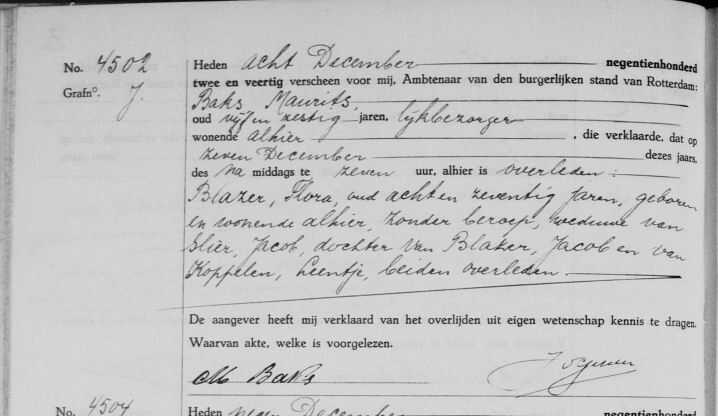 No. 4502
Grafn°. J.
Heden acht December negentienhonderd
twee en veertig verscheen voor mij, Ambtenaar van den burgerlijken stand van Rotterdam:
Baks Maurits,
oud vijf en zestig jaren, lijkbezorger
wonende alhier, die verklaarde, dat op
zeven December dezes jaars,
des na middags te zeven uur, alhier is overleden:
Blazer, Flora, oud acht en zeventig jaren, geboren
en wonende alhier, zonder beroep, weduwe van
Slier, Jacob, dochter van Blazer, Jacob en van
Koppelen, Leentje, beiden overleden.
De aangever heeft mij verklaard van het overlijden uit eigen wetenschap kennis te dragen.
Waarvan akte, welke is voorgelezen.
M Baks
No. 4504
Heden negen December negentienhonderd